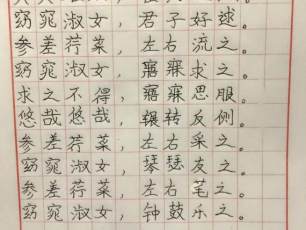 窈窕淑女，君子好逑。
参差荇菜，左右流之。
窈窕淑女，寤寐求之。
求之不得，寤寐思服。
悠哉悠哉，辗转反侧。
参差荇菜，左右采之。
窈窕淑女，琴瑟友之。
参差荇菜，左右笔之。
窈窕淑女，钟鼓乐之。